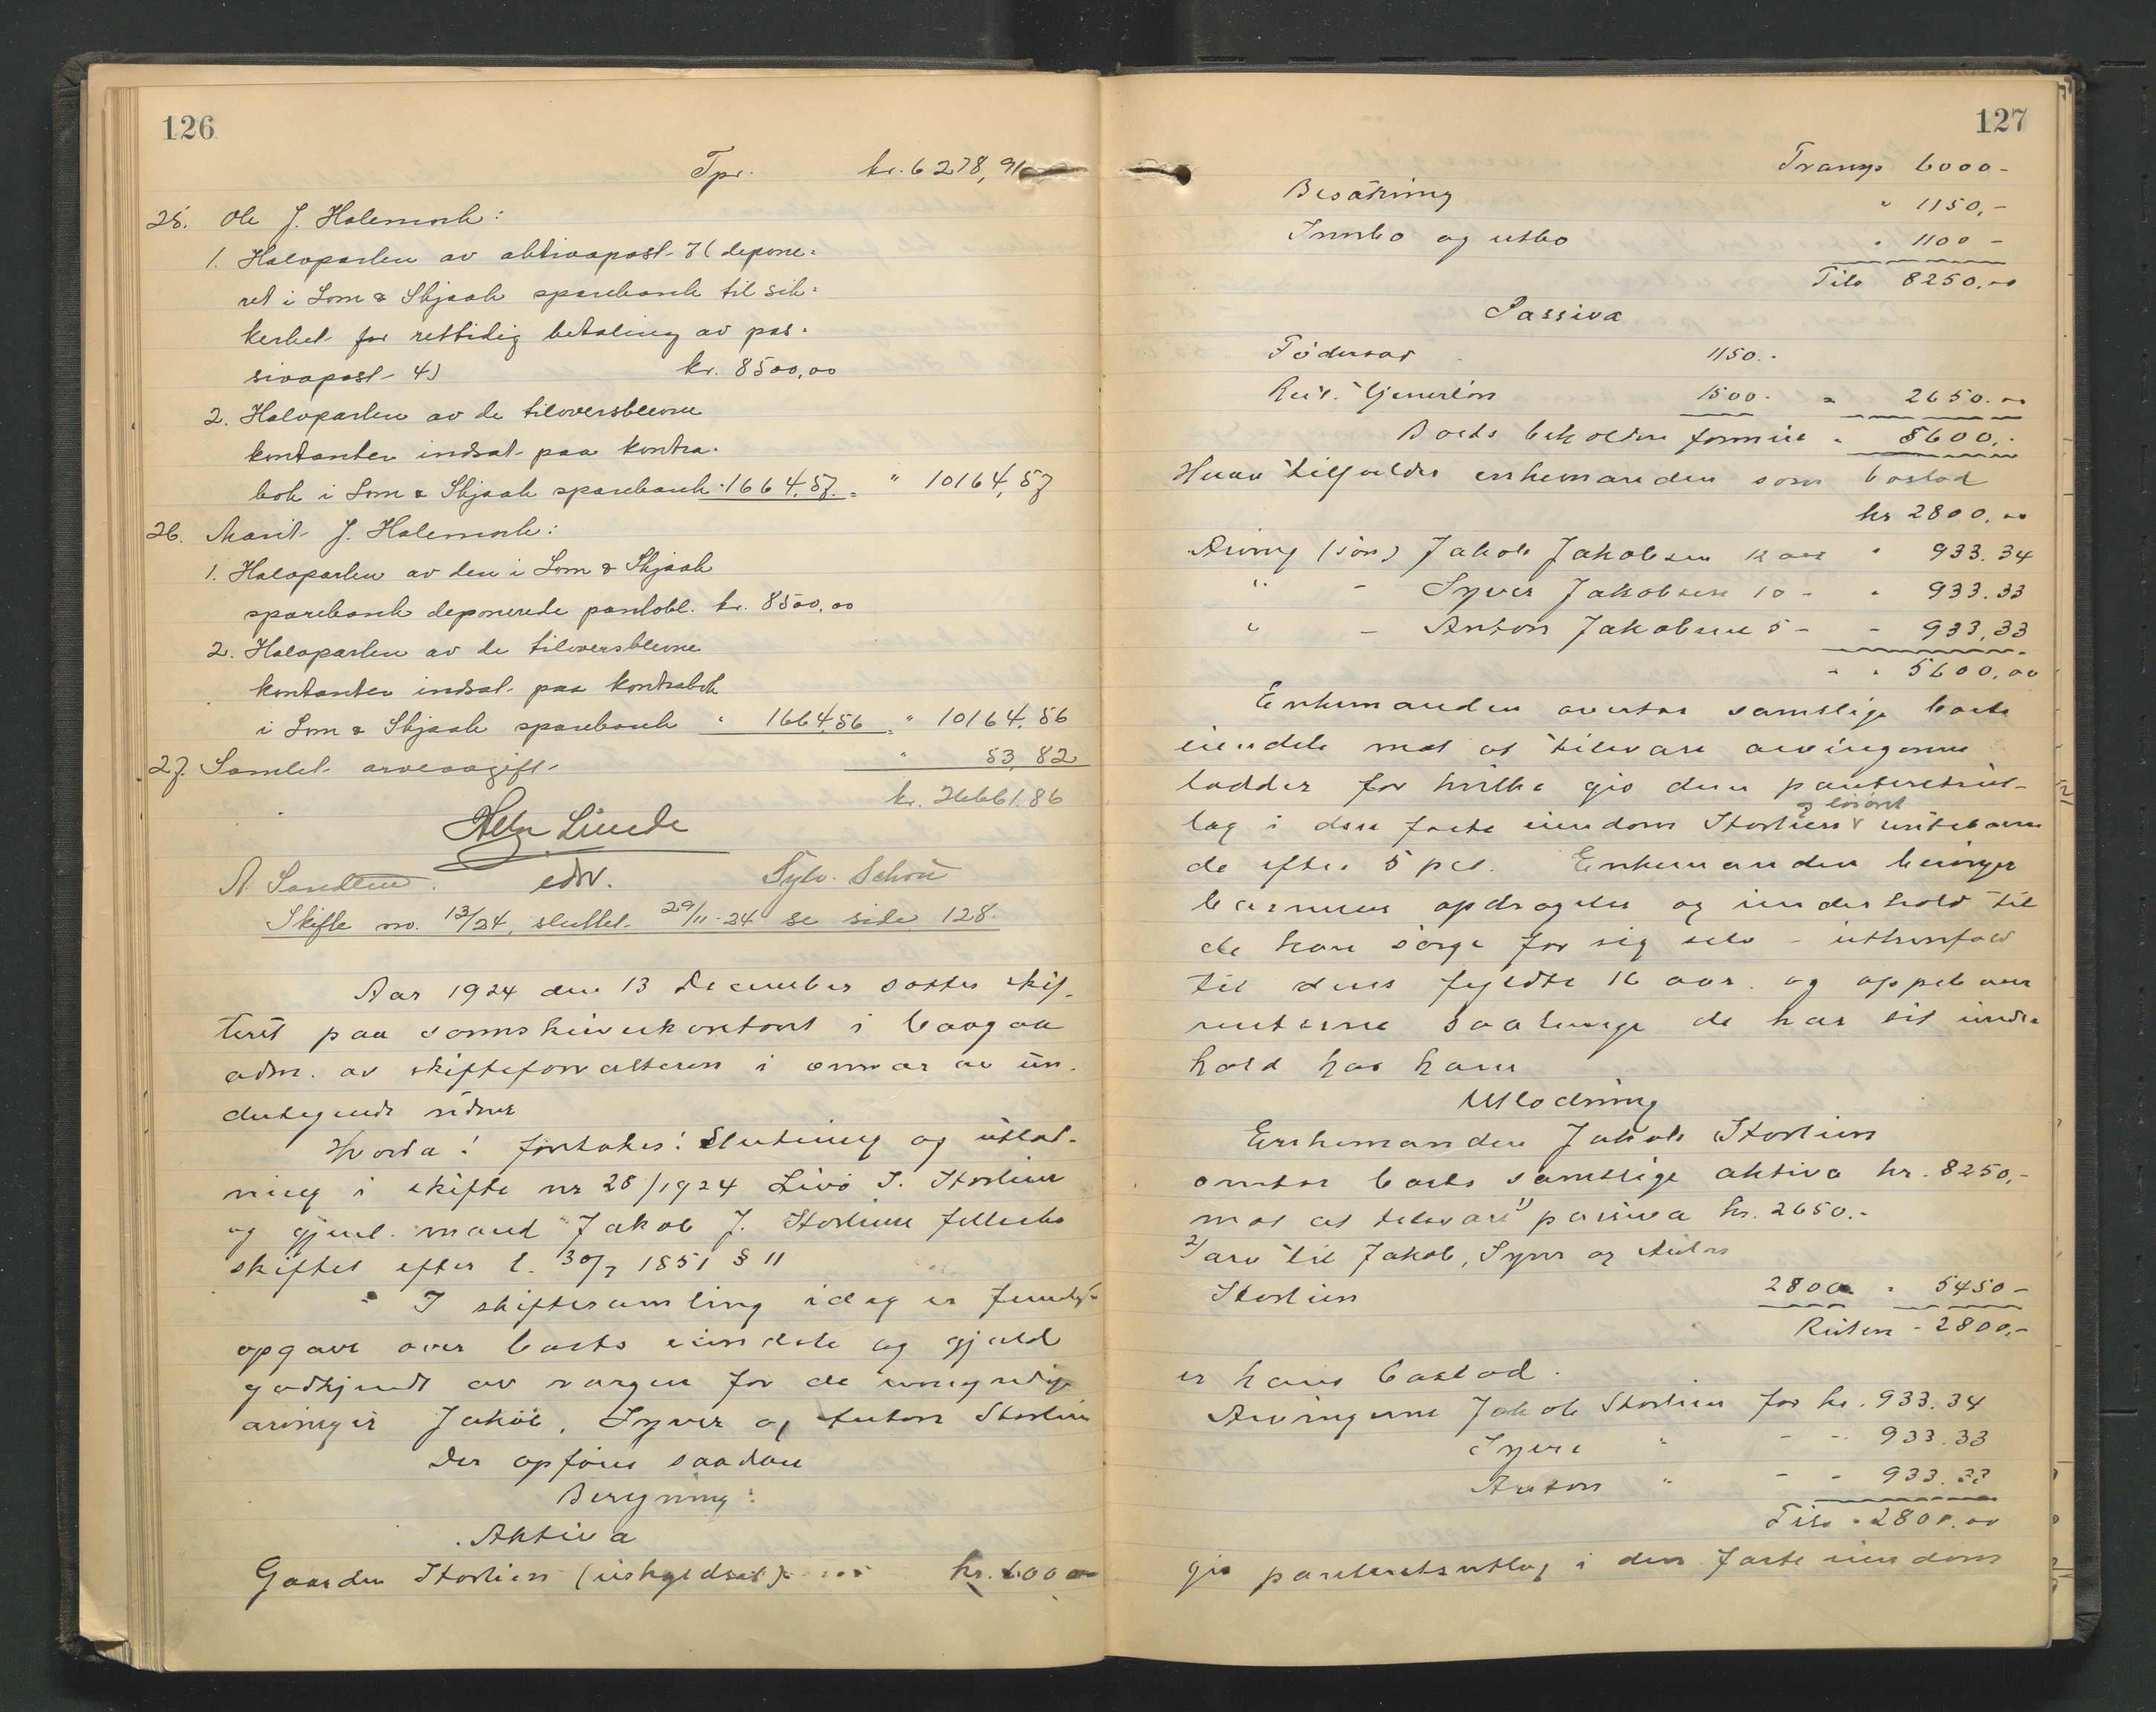 126
Tpr. kr. 6278,91
25. Ole J. Holemork:
1. Halvparten av aktivapost 7 (depone-
ret i Lom & Skjaak sparebank til sik-
kerhet for rettidig betaling av pas-
sivapost 4) kr. 8500,00
2. Halvparten av de tiloversblevne
kontanter indsat paa kontra-
bok i Lom & Skjaak sparebank " 1664,57 = " 10164,57
26. Marit J. Holemork:
1. Halvparten av den i Lom & Skjaak
sparebank deponerede pantobl. kr. 8500,00
2. Halvparten av de tiloversblevne
kontanter indsat paa kontrabok
i Lom & Skjaak sparebank " 1664,56 = " 10164,56
27. Samlet arveavgift " 53,82
kr. 26661,86
Linde
A. Sandlien. edsv. Sylv. Schou
Skifte no. 13/24, sluttet 29/11-24 se side 128.
Aar 1924 den 13 December sattes skif-
teret paa sorenskriverkontoret i Vaagaa
adm. av skifteforvalteren i nærvær av un-
dertegnede vidner
Hvorda! foretokes: Slutning og utlod-
ning i skifte nr 28/1924 Livø J. Storlien
og gjenl. mand Jakob J. Storlien fællesbo
skiftet efter l. 30/7 1851 § 11
I skiftesamling idag er fremlagt
opgave over boets eiendele og gjæld
godkjendt av vergen for de umyndige
arvinger Jakob, Syver og Anton Storlien
Der opføres saadan
Beregning:
Aktiva
Gaarden Storlien (uskyldsat) kr. 6000

127
Transp 6000-
Besætning " 1150,-
Innbo og utbo " 1100 -
Tils 8250,00
Passiva
Føderaad 1150.-
Rest. tjenerløn 1500.- = 2650.00
Boets beholdne formue " 5600,-
Herav tilfalder enkemanden som boslod
kr 2800,00
Arving (søn) Jakob Jakobsen 12 aar " 933.34
" - Syver Jakobsen 10 - " 933.33
" - Anton Jakobsen 5 - - 933,33
- " 5600,00
Enkemanden overtar samtlige boets
eiendele mot at tilsvare arvingernes
lodder for hvilke gis dem panteretsut-
læg i den faste eiendom Storlien og løsøret rentebæren-
de efter 5 pct. Enkemanden besørger
barnenes opdragelse og underhold til
de kan sørge for sig selv - ialfald
til deres fyldte 16 aar og oppebærer
renterne saalænge de har sit under-
hold hos ham
Utlodning
Enkemanden Jakob Storlien
overtar boets samtlige aktiva kr. 8250,-
mot at tilsvare 1) passiva kr. 2650.-
2) arv til Jakob, Syver og Anton
Storlien 2800. " 5450 -
Resten - 2800,-
er hans boslod.
Arvingerne Jakob Storlien for kr. 933.34
Syver " - - 933.33
Anton " - - 933.33
Tils - 2800.00
gis panteretsutlæg i den faste eiendom